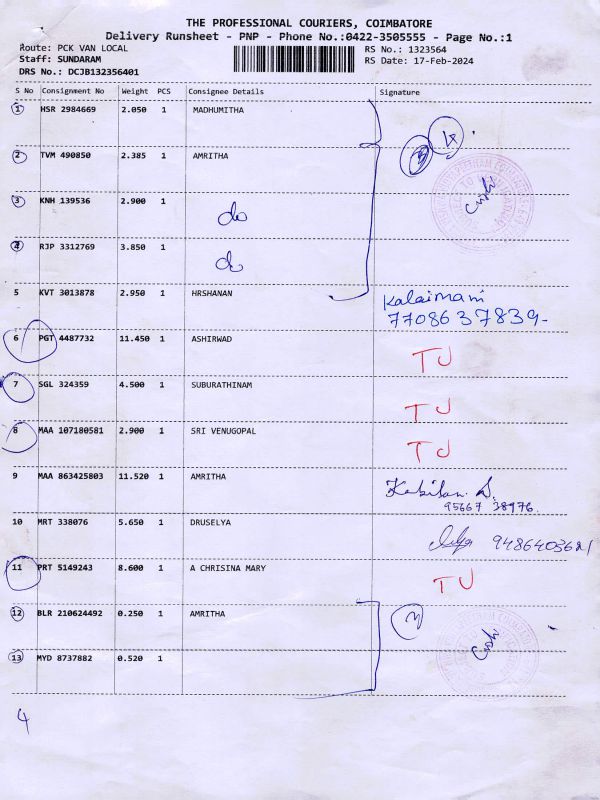 THE PROFESSIONAL COURIERS, COIMBATORE
Delivery Runsheet - PNP - Phone No.:0422-3505555 - Page No.:1
Route: PCK VAN LOCAL RS No.: 1323564
Staff: SUNDARAM RS Date: 17-Feb-2024
DRS No.: DCJB132356401
S No Consignment No Weight PCS Consignee Details Signature
1 HSR 2984669 2.050 1 MADHUMITHA
2 TVM 490850 2.385 1 AMRITHA
3 KNH 139536 2.900 1 do
4 RJP 3312769 3.850 1 do
5 KVT 3013878 2.950 1 HRSHANAN Kalaimani
7708637839-
6 PGT 4487732 11.450 1 ASHIRWAD TU
7 SGL 324359 4.500 1 SUBURATHINAM TU
8 MAA 107180581 2.900 1 SRI VENUGOPAL TU
9 MAA 863425803 11.520 1 AMRITHA Kabilan .S.
95667 38976.
10 MRT 338076 5.650 1 DRUSELYA 9486403621
11 PRT 5149243 8.600 1 A CHRISINA MARY TU
12 BLR 210624492 0.250 1 AMRITHA
13 MYD 8737882 0.520 1
4